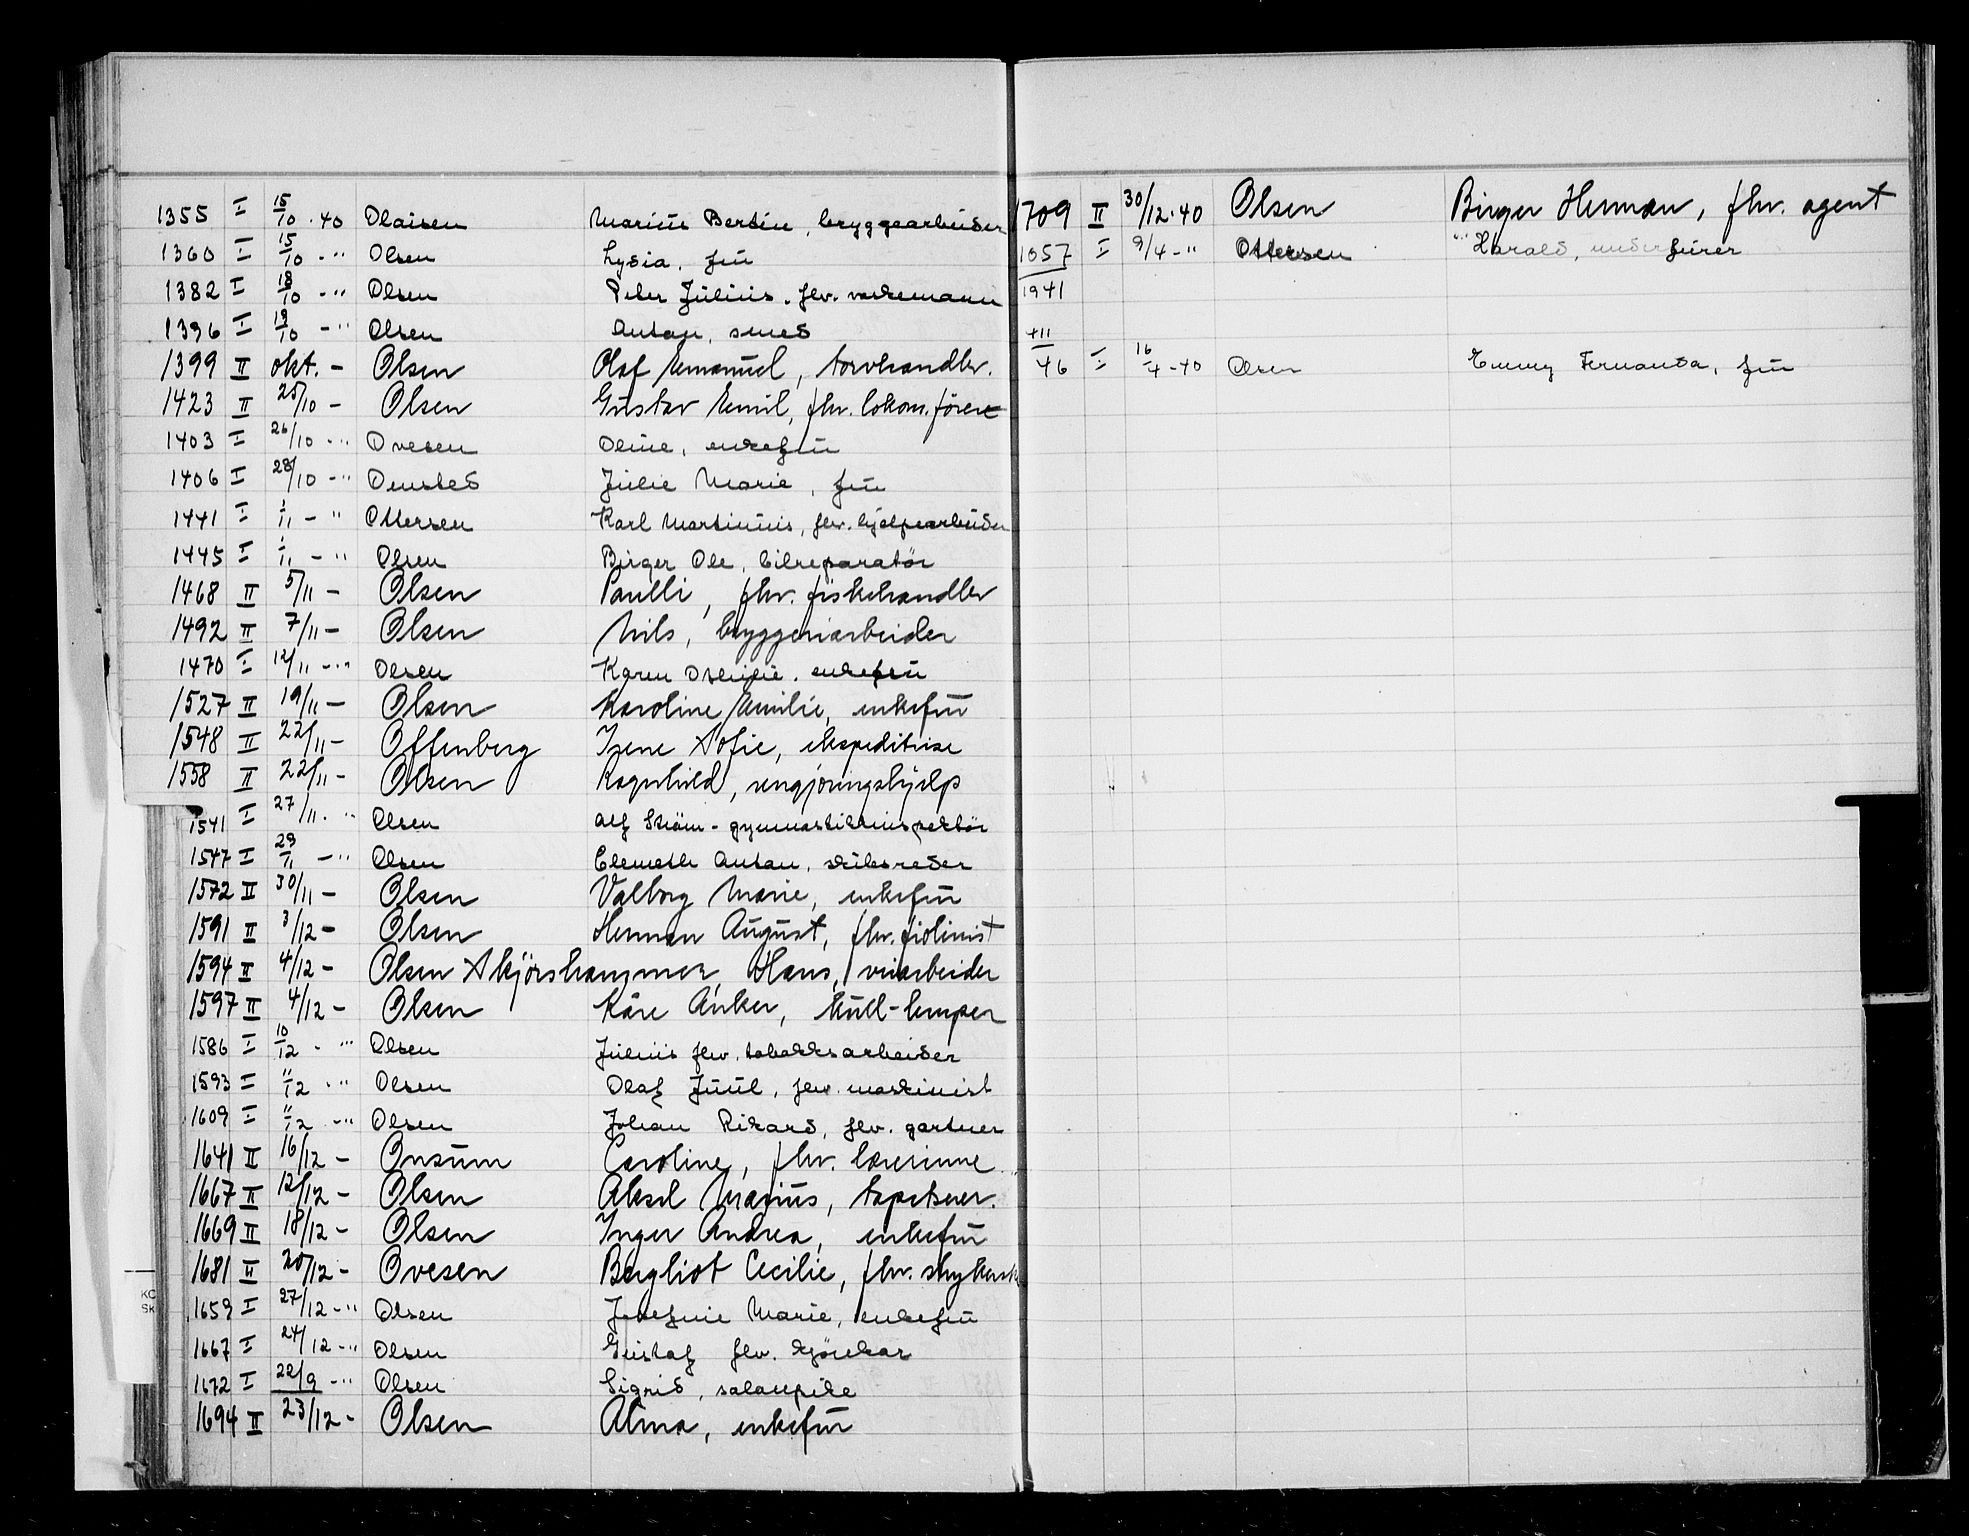 1355 I 15/10 · 40 Olaisen Marius Bertin, bryggearbeider
1360 I 15/10 - " Olsen Lydia, frü
1382 I 18/10 - " Olsen Peter Julius, fhv. vaktmann
1396 I 19/10 - " Olsen Anton, smed
1399 II okt. - Olsen Olaf Emanuel, torvhandler.
1423 II 25/10 - Olsen Gustav Emil, fhv. lokom. fører
1403 I 26/10 - " Ovesen Oline, enkefrü
1406 I 28/10 - " Onsted Julie Marie, frü
1441 I 1/11 - " Ottersen Karl Martinius, fhv. hjelpearbeider
1445 I 1/11 - " Olsen Birger Ole, bilreparatör
1468 II 5/11 - Olsen Paulli, fhv. fiskehandler
1492 II 7/11 - Olsen Nils, bryggeriarbeider
1470 I 12/11 - " Olsen Karen, enkefrü
1527 II 19/11 - Olsen Karoline Emilie, enkefrü
1548 II 22/11 - Offenberg Irene Sofie, ekspeditrise
1558 II 22/11 - Olsen Ragnhild, rengjøringshjelp
1541 I 27/11 · " Olsen Alf Strøm - gymnastikkinspektör
1547 I 29/11 - " Olsen Elemeth Anton, skibsreder
1572 II 30/11 - Olsen Valborg Marie, enkefrü
1591 II 3/12 - Olsen Herman August, fhv. fiolinist
1594 II 4/12 - Olsen Skjørshammer, Hans, veiarbeider
1597 II 4/12 - Olsen Kåre Anker, kull-lemper
1586 I 10/12 · " Olsen Julius fhv. tobakksarbeider
1593 I 11/12 · " Olsen Olaf Juul, fhv. maskinist
1609 I 11/12 - " Olsen Johan Rikard, fhv. gartner
1641 II 16/12 - Onsum Caroline, fhv. lærerinne
1667 II 12/12 - Olsen Aksel Marius, tapetserer.
1669 II 18/12 - Olsen Inger Andrea, enkefrü
1681 II 20/12 - Ovesen Bergliot Cecilie, fhv.
1659 I 27/12 - " Olsen Josefine Marie, enkefrü
1667 I 24/12 - " Olsen Gustaf fhv. kjørekar
1672 I 22/9 - " Olsen Sigrid, salonpike
1694 II 23/12 - Olsen Alma, enkefrü
1709 II 30/12 · 40 Olsen Birger Herman, fhv. agent
1057 I 9/4 - " Ottesen Harald, underfurer
1941
411
46 I 16/4 - 40 Olsen Emmy Fernanda, frü
KO
SK